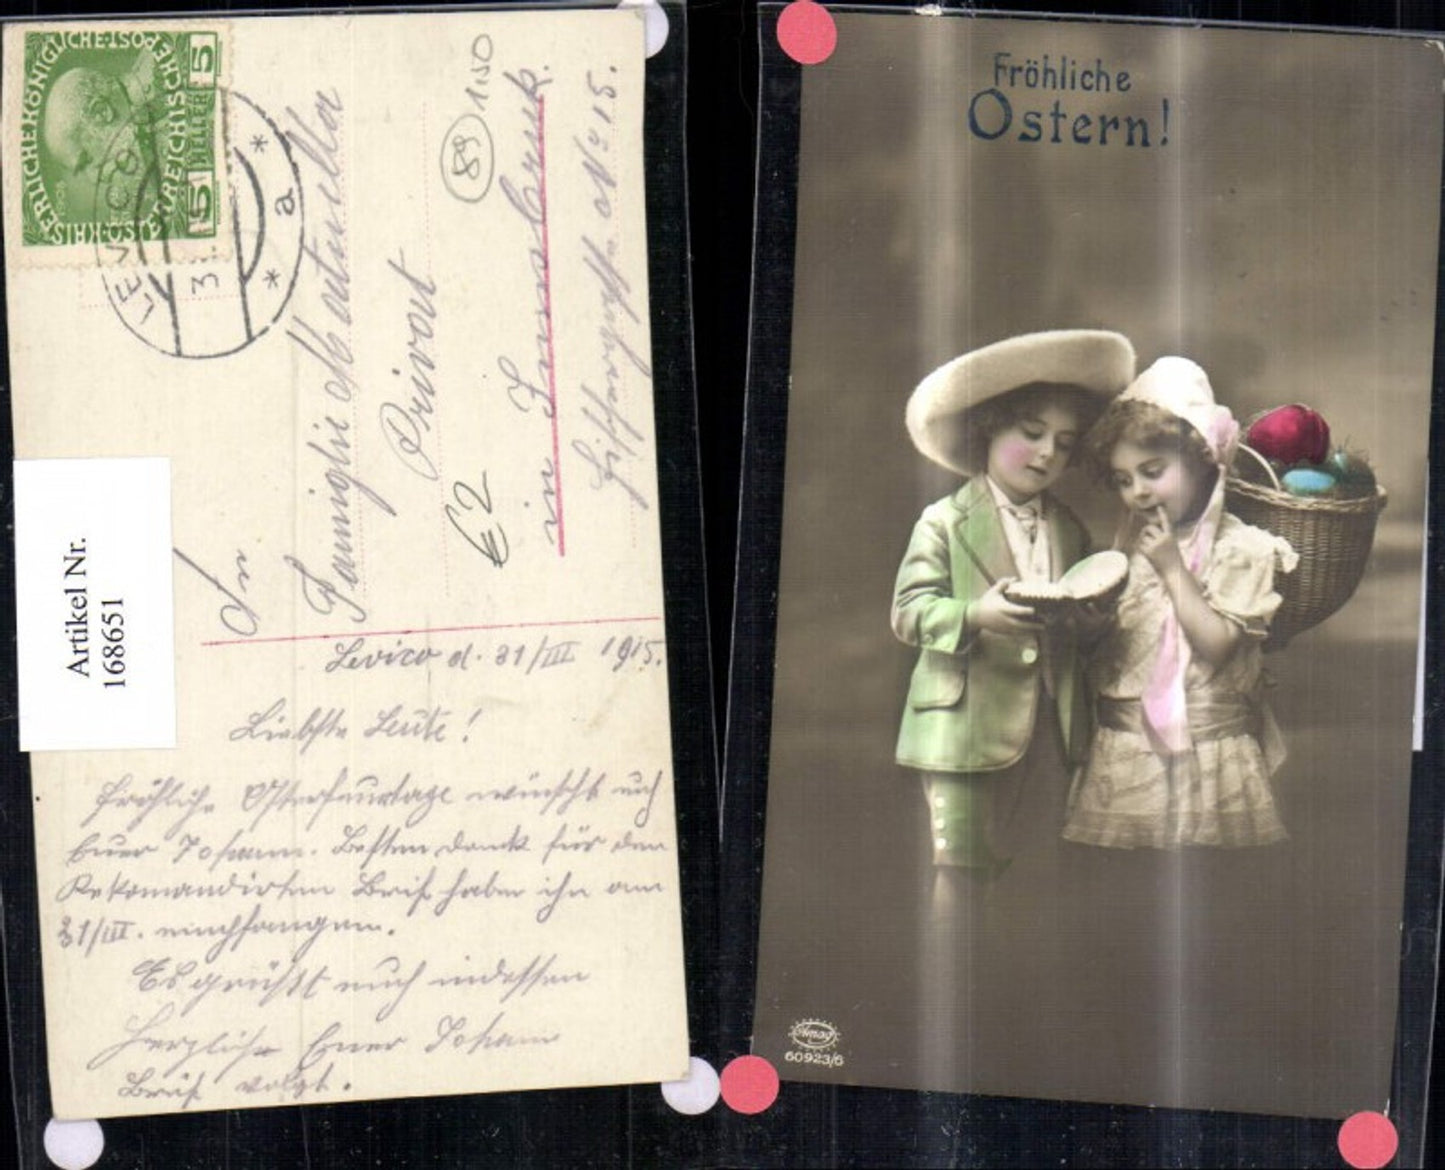 KAISERLICHE KÖNIGLICHE ÖSTERREICHISCHE POST
5 HELLER 5
LEVICO
3
a
89
1.50
An
Famiglie Mattuella
Privat
in Innsbruck.
No 15.
€2
Artikel Nr.
168651
Levico d. 31/III 1915.
Liebste Leute!
Fröhliche Osterfeiertage wünscht euch
Euer Johann. Besten Dank für den
Rekomandirten Brief habe ihn am
31/III. empfangen.
Es grüßt euch indessen
Herzlichst Euer Johann
Brief volgt.
Fröhliche
Ostern!
Amag
60923/6